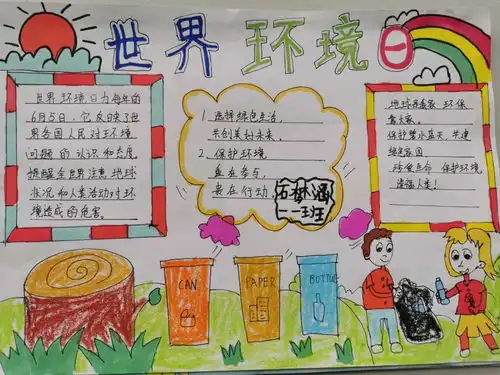 世界环境日
世界环境日为每年的
6月5日,它反映了世
界各国人民对环境
问题的认识和态度,
提醒全世界注意地球
状况和人类活动对环
境造成的危害。
1、选择绿色生活,
共创美好未来,
2、保护环境
贵在参与,
贵在行动
石梦涵
一一班
地球是我家,环保
靠大家
保护碧水蓝天,共建
绿色家园
环保生命
保护环境,
造福人类!
CAN
PAPER
BOTTLE